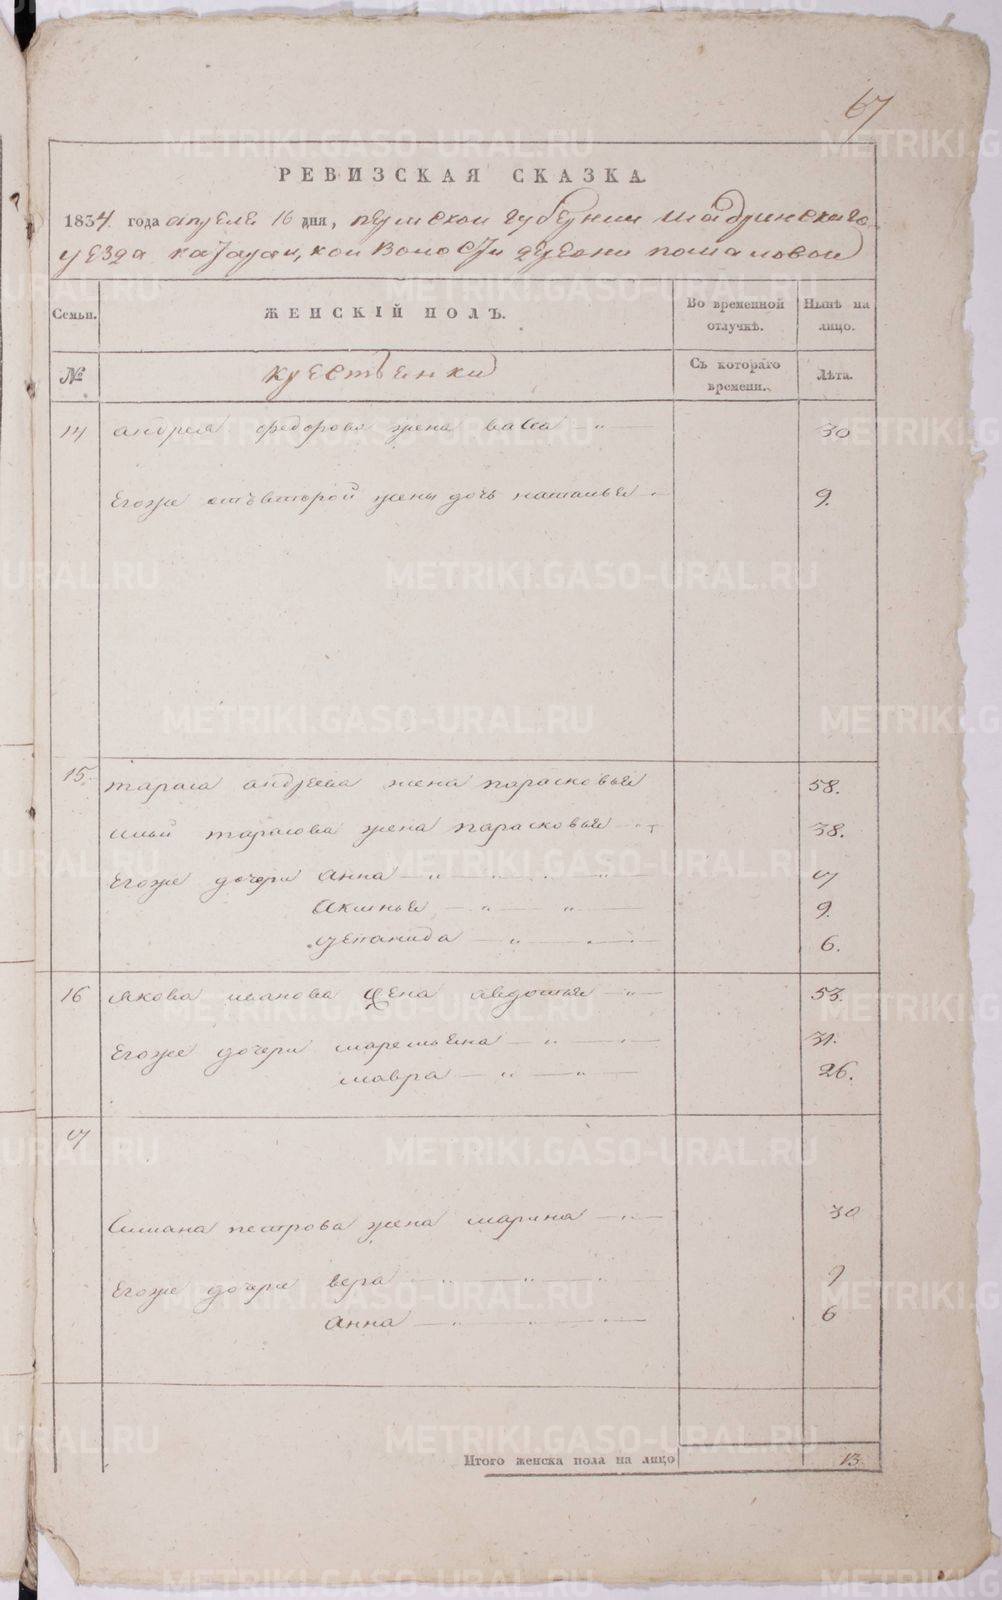 67
РЕВИЗСКАЯ СКАЗКА.
1834 года апреля 16 дня, пермской губернии шадринскаго
уезда волости деревни
Семьи. ЖЕНСКІЙ ПОЛЪ. Во временной отлучкѣ. Нынѣ на лицо.
№ крестьянки Съ котораго времени. Лѣта.
14 андрея федорова жена васса 30
Егоже отвторой жены дочь наталья 9.
15. тараса андреева жена парасковья 58.
ильи тарасова жена парасковья 38.
Егоже дочери анна 17
аксинья 9.
степанида 6.
16 иванова жена авдотья 53.
Егоже дочери маремьяна 31.
мавра 26.
17
симиана петрова жена марина 30
Егоже дочери вера 9
анна 6
Итого женска пола на лицо 13.
METRIKI.GASO-URAL.RU